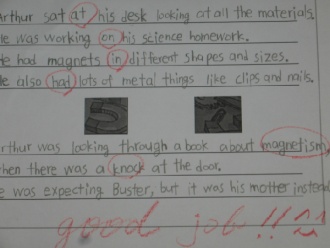 Arthur sat at his desk looking at all the materials.
He was working on his science homework.
He had magnets in different shapes and sizes.
He also had lots of metal things like clips and nails.
Arthur was looking through a book about magnetism,
when there was a knock at the door.
He was expecting Buster, but it was his mother instead
good job!!